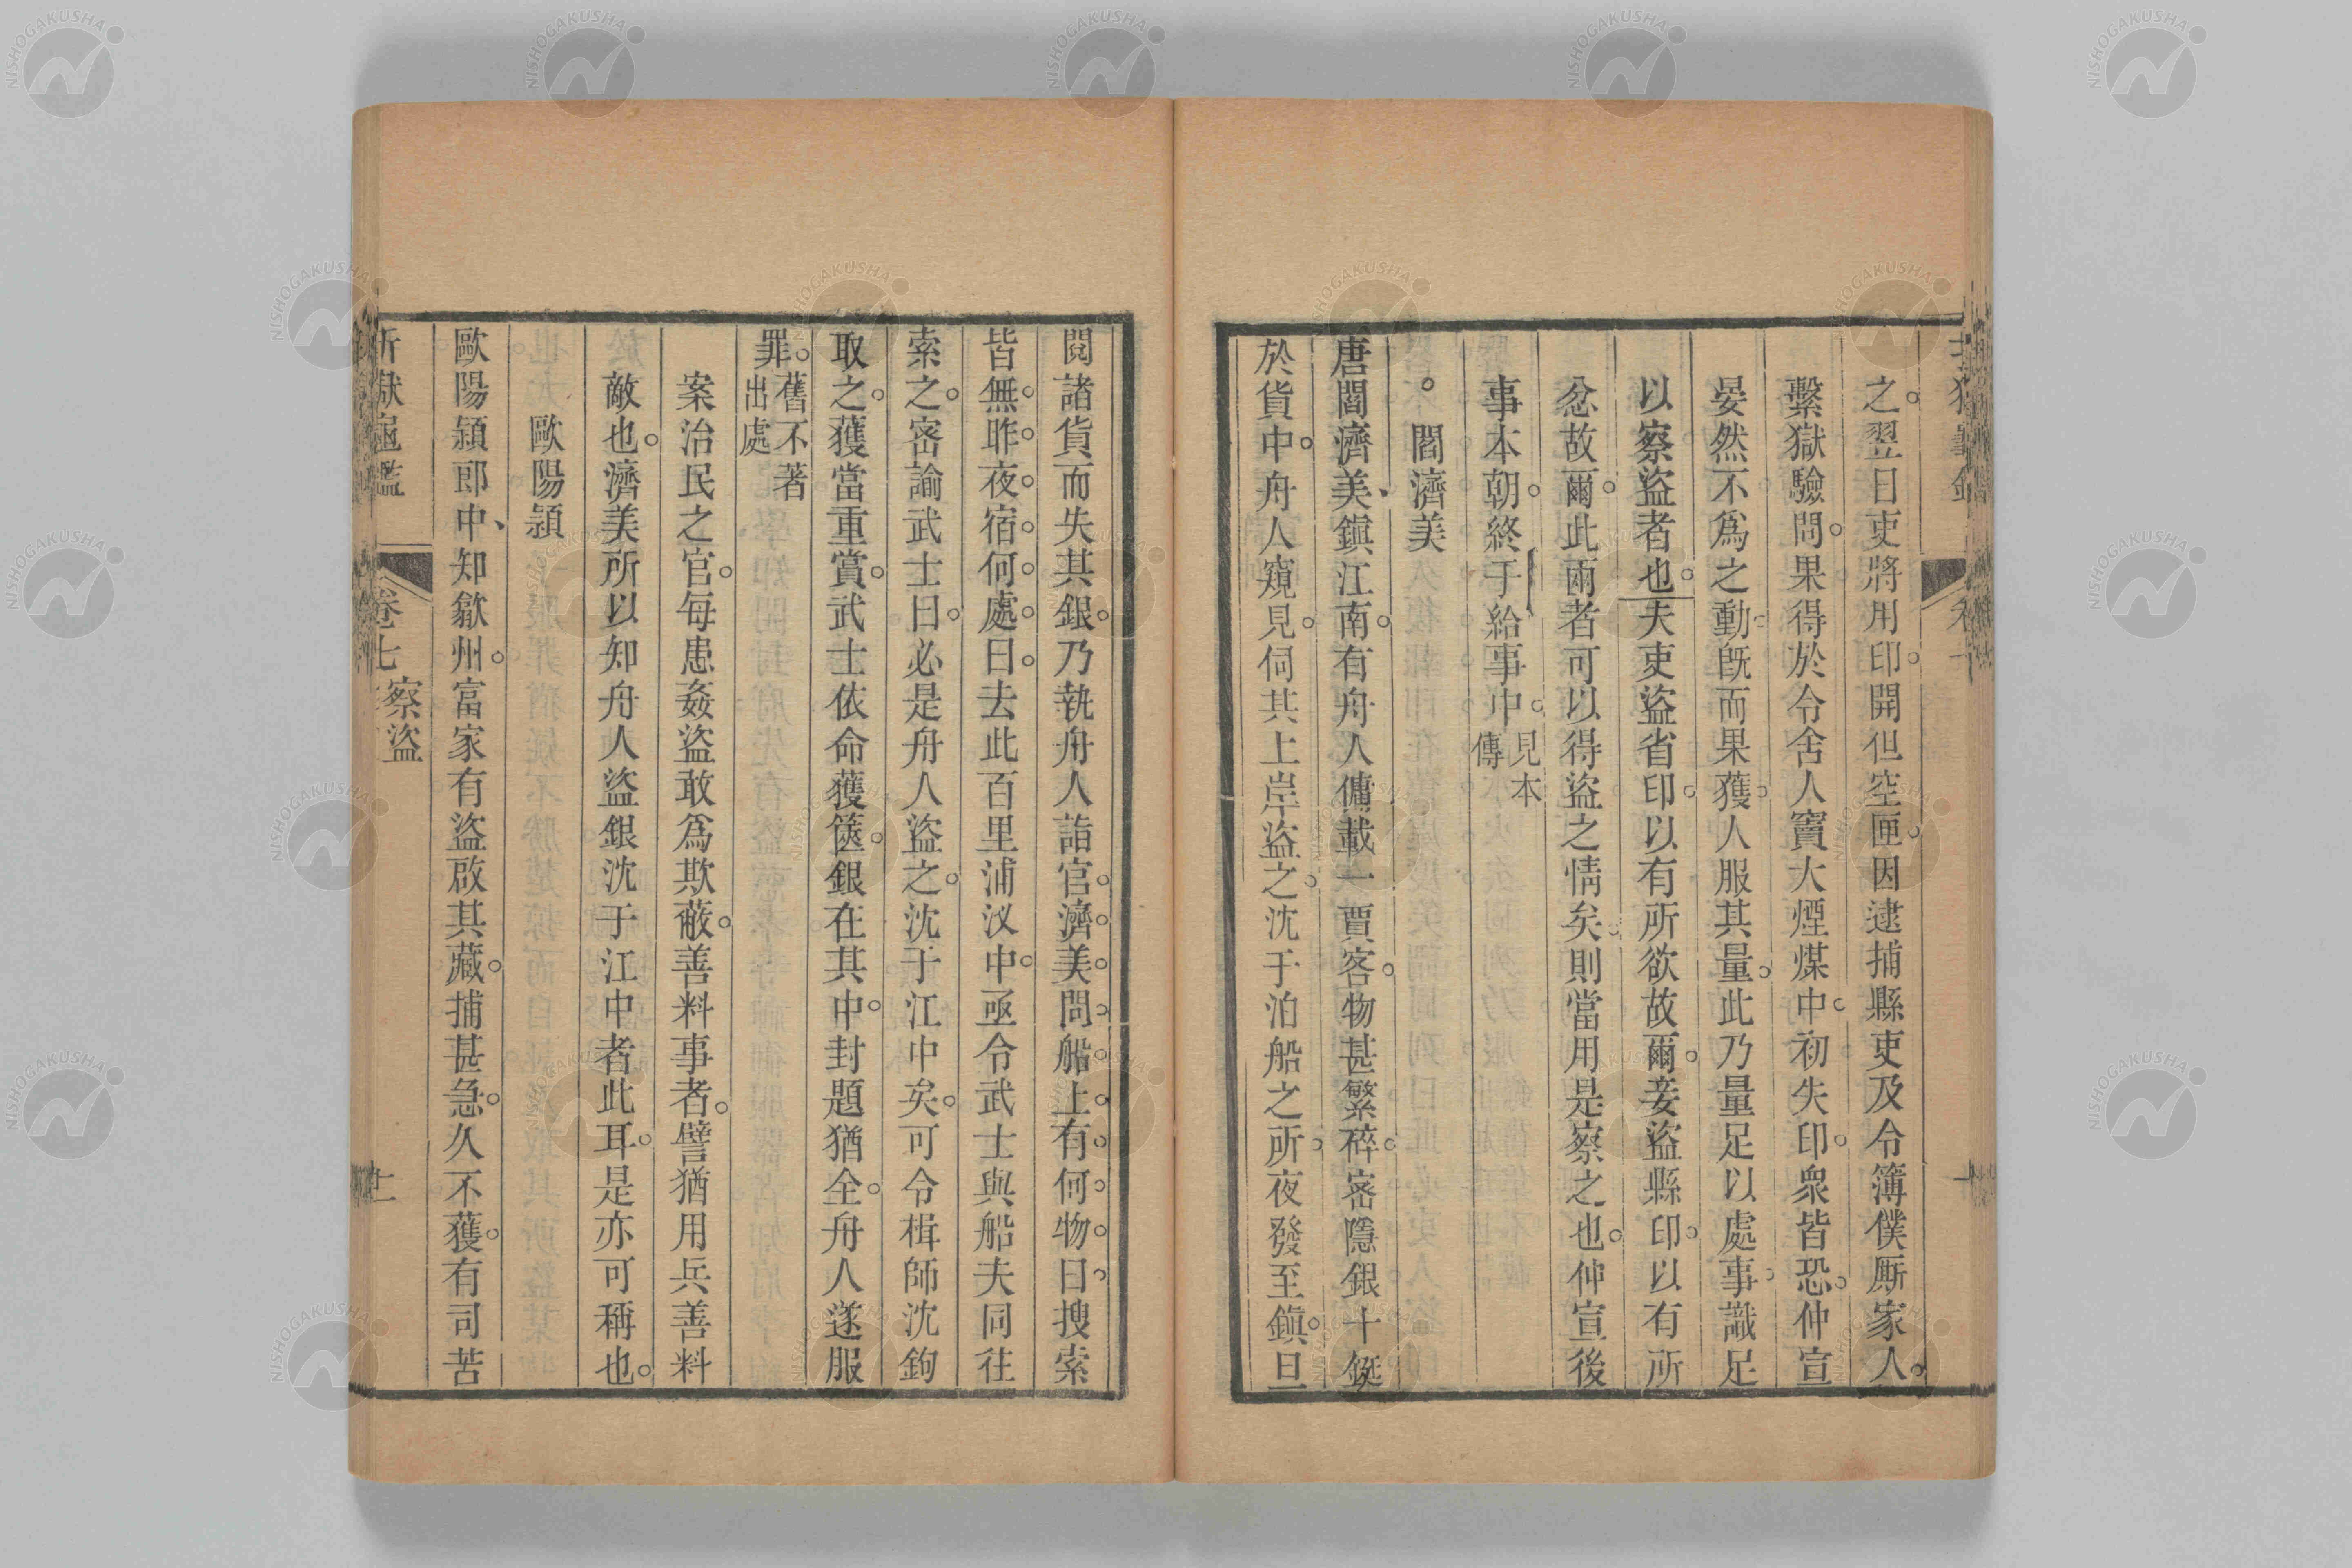 之翌日吏將用印開但空匣因逮捕縣吏及令簿僕厮家人
繫獄驗問果得於令舍人竇大煙煤中初失印衆皆恐仲宣
晏然不爲之動旣而果獲人服其量此乃量足以處事識足
以察盜者也夫吏盜省印以有所欲故爾妾盜縣印以有所
忿故爾此兩者可以得盜之情矣則當用是察之也仲宣後
事本朝終于給事中見本傳
閻濟美
唐閻濟美鎮江南有舟人傭載一賈客物甚繁碎宻隱銀十鋌
於貨中舟人窺見伺其上岸盜之沈于泊船之所夜發至鎮旦
閱諸貨而失其銀乃執舟人詣官濟美問船上有何物曰搜索
皆無昨夜宿何處曰去此百里浦汊中亟令武士與船夫同往
索之宻諭武士曰必是舟人盜之沈于江中矣可令楫師沈鉤
取之獲當重賞武士依命獲篋銀在其中封題猶全舟人遂服
罪舊不著出處
案治民之官每患姦盜敢爲欺蔽善料事者譬猶用兵善料
敵也濟美所以知舟人盜銀沈于江中者此耳是亦可稱也
歐陽頴
歐陽頴郎中知歙州富家有盜啟其藏捕甚急久不獲有司苦
折獄龜鑑 卷七 察盜 十一
NISHOGAKUSHA